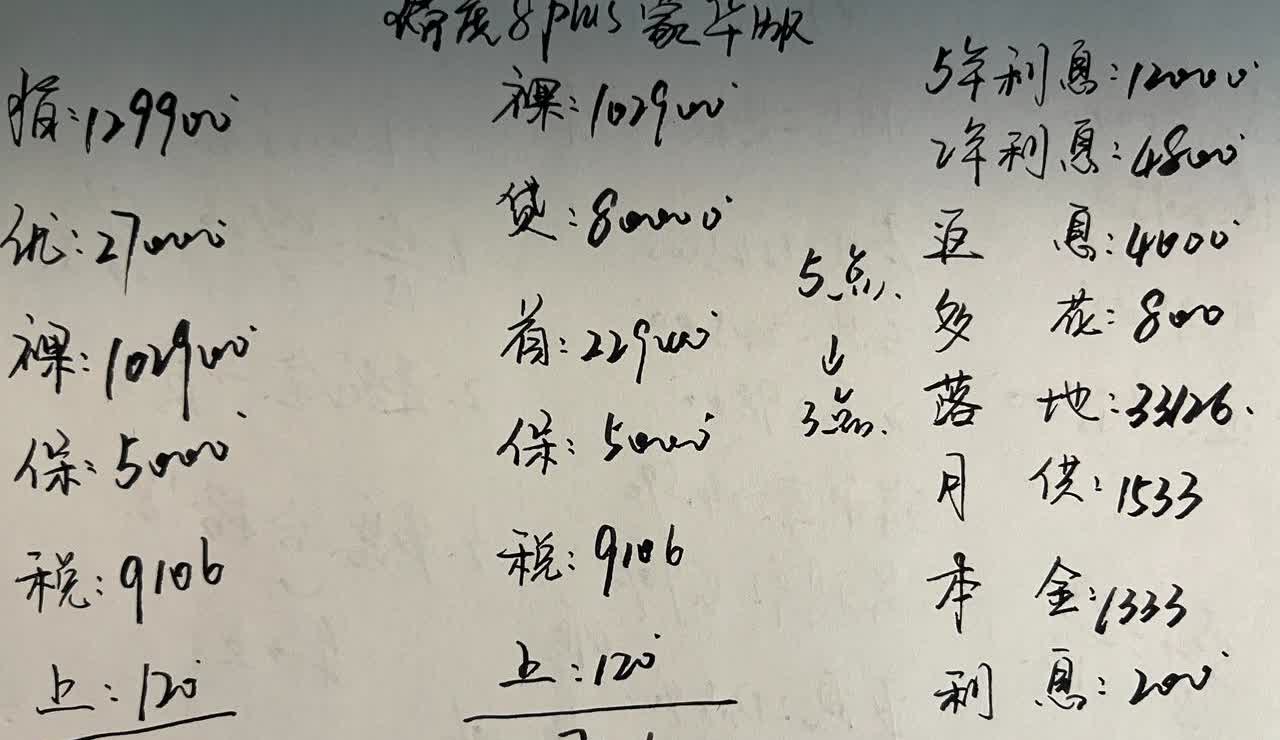 瑞虎8plus豪华版
指:129900
优:27000
裸:102900
保:5000
税:9106
上:120
裸:102900
贷:80000
首:22900
保:5000
税:9106
上:120
5点.
↓
3点.
5年利息:12000
2年利息:4800
返 息:4000
多 花:800
落 地:33126.
月 供:1533
本 金:1333
利 息:200